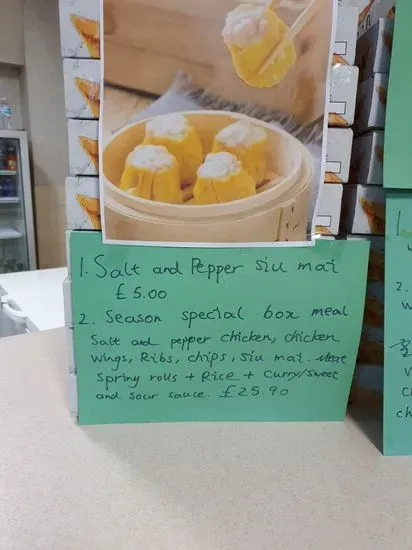 1. Salt and Pepper siu mai
£5.00
2. Season special box meal
Salt and pepper chicken, chicken
wings, Ribs, chips, siu mai. Meat
Spriny rolls + Rice + Curry/sweet
and sour sauce. £25.90
1.
2.